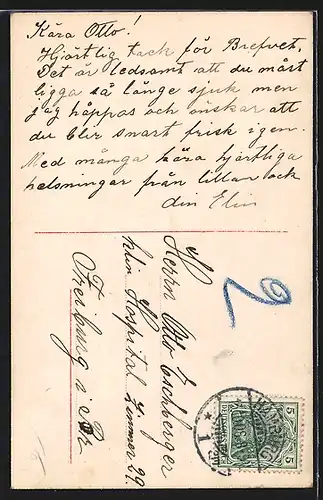 Kära Otto!
Hjärtlig tack för Brefvet,
Det är ledsamt att du måst
ligga så länge sjuk men
jag håppas och önskar att
du blir snart frisk igen.
Med många kära hjärtliga
helsningar från lillan och
din Elin
Herrn Otto Eschberger
klin Hospital Zimmer 29.
Freiburg i. Br.
2
5 5